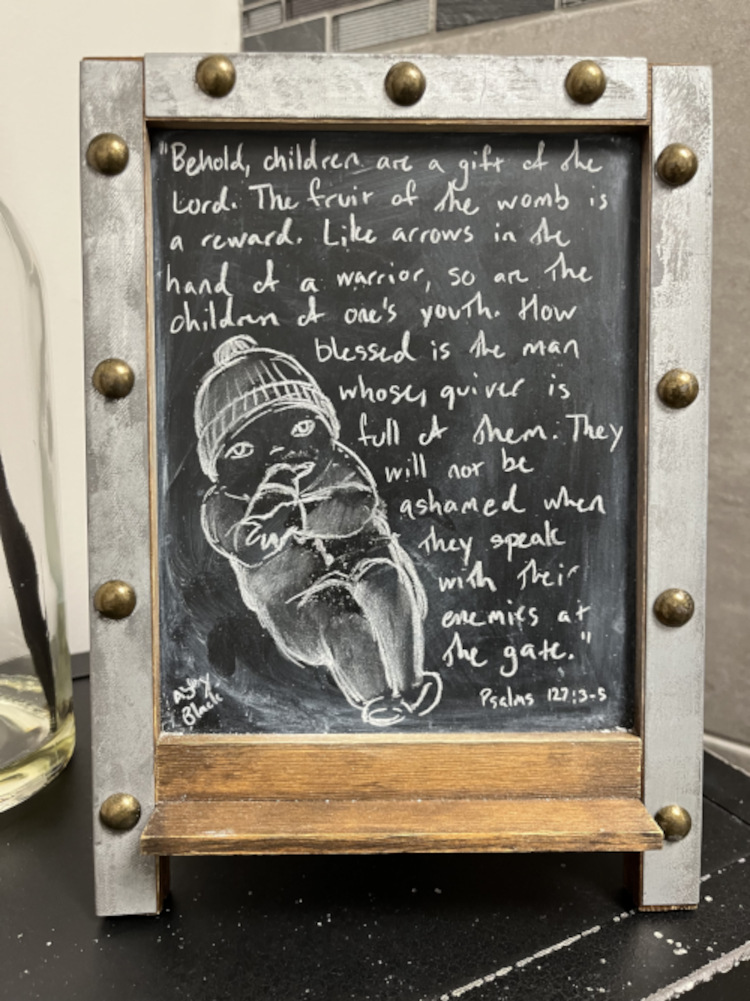 "Behold, children are a gift of the
Lord. The fruit of the womb is
a reward. Like arrows in the
hand of a warrior, so are the
children of one's youth. How
blessed is the man
whose quiver is
full of them. They
will not be
ashamed when
they speak
with their
enemies at
the gate."
Psalms 127:3-5
Black